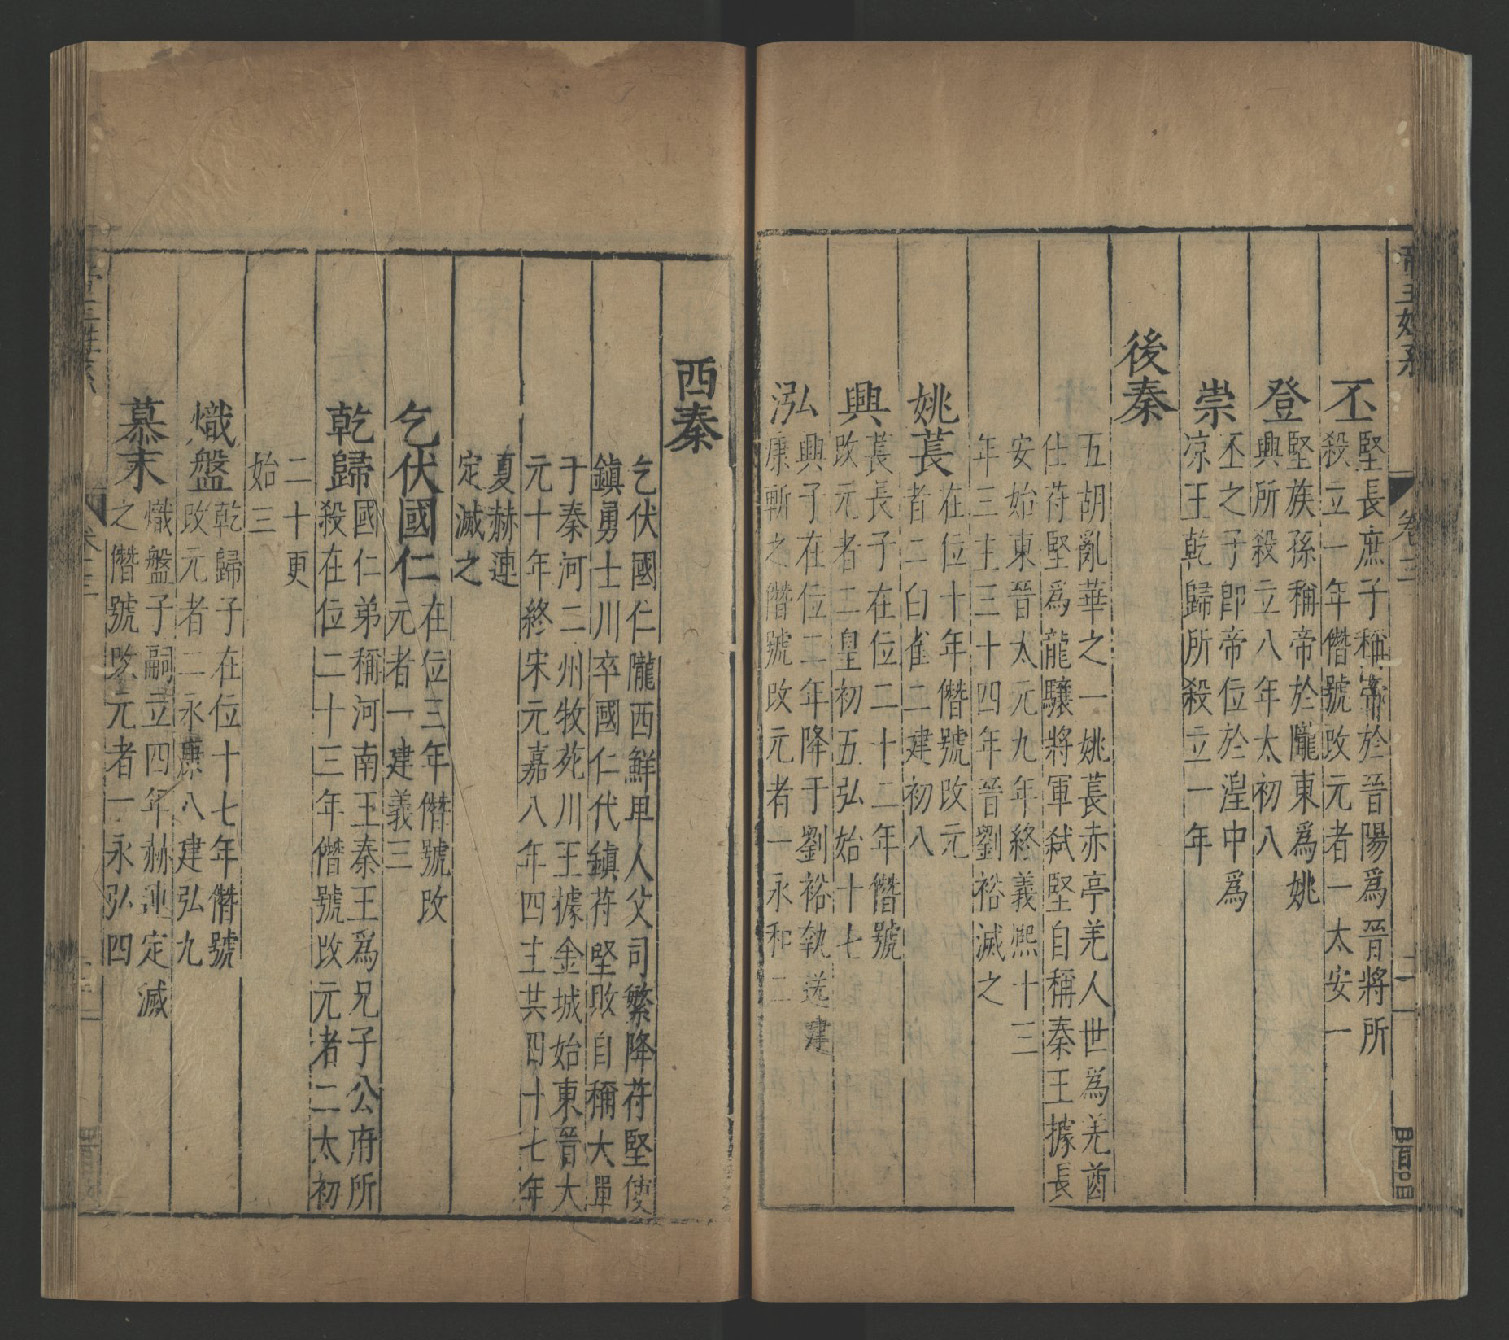 丕
堅長庶子稱帝於晉陽爲晉將所
殺立一年僭號改元者一太安一
登
堅族孫稱帝於隴東爲姚
興所殺立八年太初八
崇
丕之子卽帝位於湟中爲
凉王乾歸所殺立一年
後秦
五胡亂華之一姚萇赤亭羌人世爲羌酋
仕苻堅爲龍驤將軍弒堅自稱秦王據長
安始東晉太元九年終義熙十三
年三主三十四年晉劉裕滅之
姚萇
在位十年僭號改元
者二白雀二建初八
興
萇長子在位二十二年僭號
改元者二皇初五弘始十七
泓
興子在位二年降于劉裕執送建
康斬之僭號改元者一永和二
西秦
乞伏國仁隴西鮮卑人父司繁降苻堅使
鎮勇士川卒國仁代鎮苻堅敗自稱大單
于秦河二州牧苑川王據金城始東晉大
元十年終宋元嘉八年四主共四十七年
夏赫連
定滅之
乞伏國仁
在位三年僭號改
元者一建義三
乾歸
國仁弟稱河南王秦王爲兄子公府所
殺在位二十三年僭號改元者二太初
二十更
始三
熾盤
乾歸子在位十七年僭號
改元者二永康八建弘九
慕末
熾盤子嗣立四年赫連定滅
之僭號改元者一永弘四